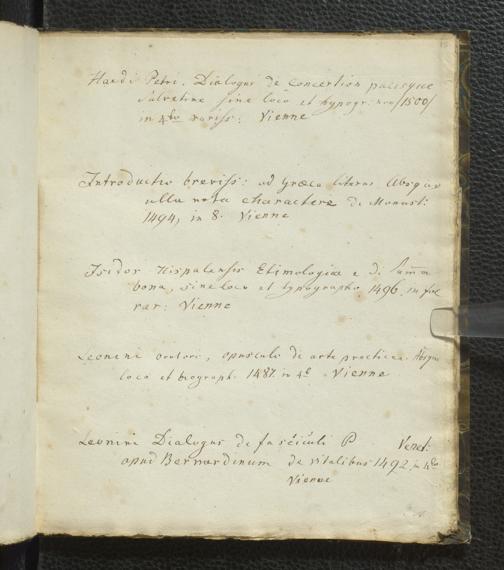 Haedi Petri. Dialogus de Concertion pacisque
Salvatine sine loco et typogr: nro /1500/
in 4to rariss: Vienne
Introductio breviss: ad græca literas Absque
ulla nota charactere de Monast:
1494, in 8. Vienne
Isidor Hispalensis Etimologiæ e di summa
bona, sine loco et typographo 1496. in fol
rar: Vienne
Leonini oratori, opuscula de arte practicæ. Absque
loco et typograph. 1487. in 4o. Vienne
Leonini Dialogus de fasciculi P Venet:
apud Bernardinum de vitalibus 1492. in 4to
Vienne